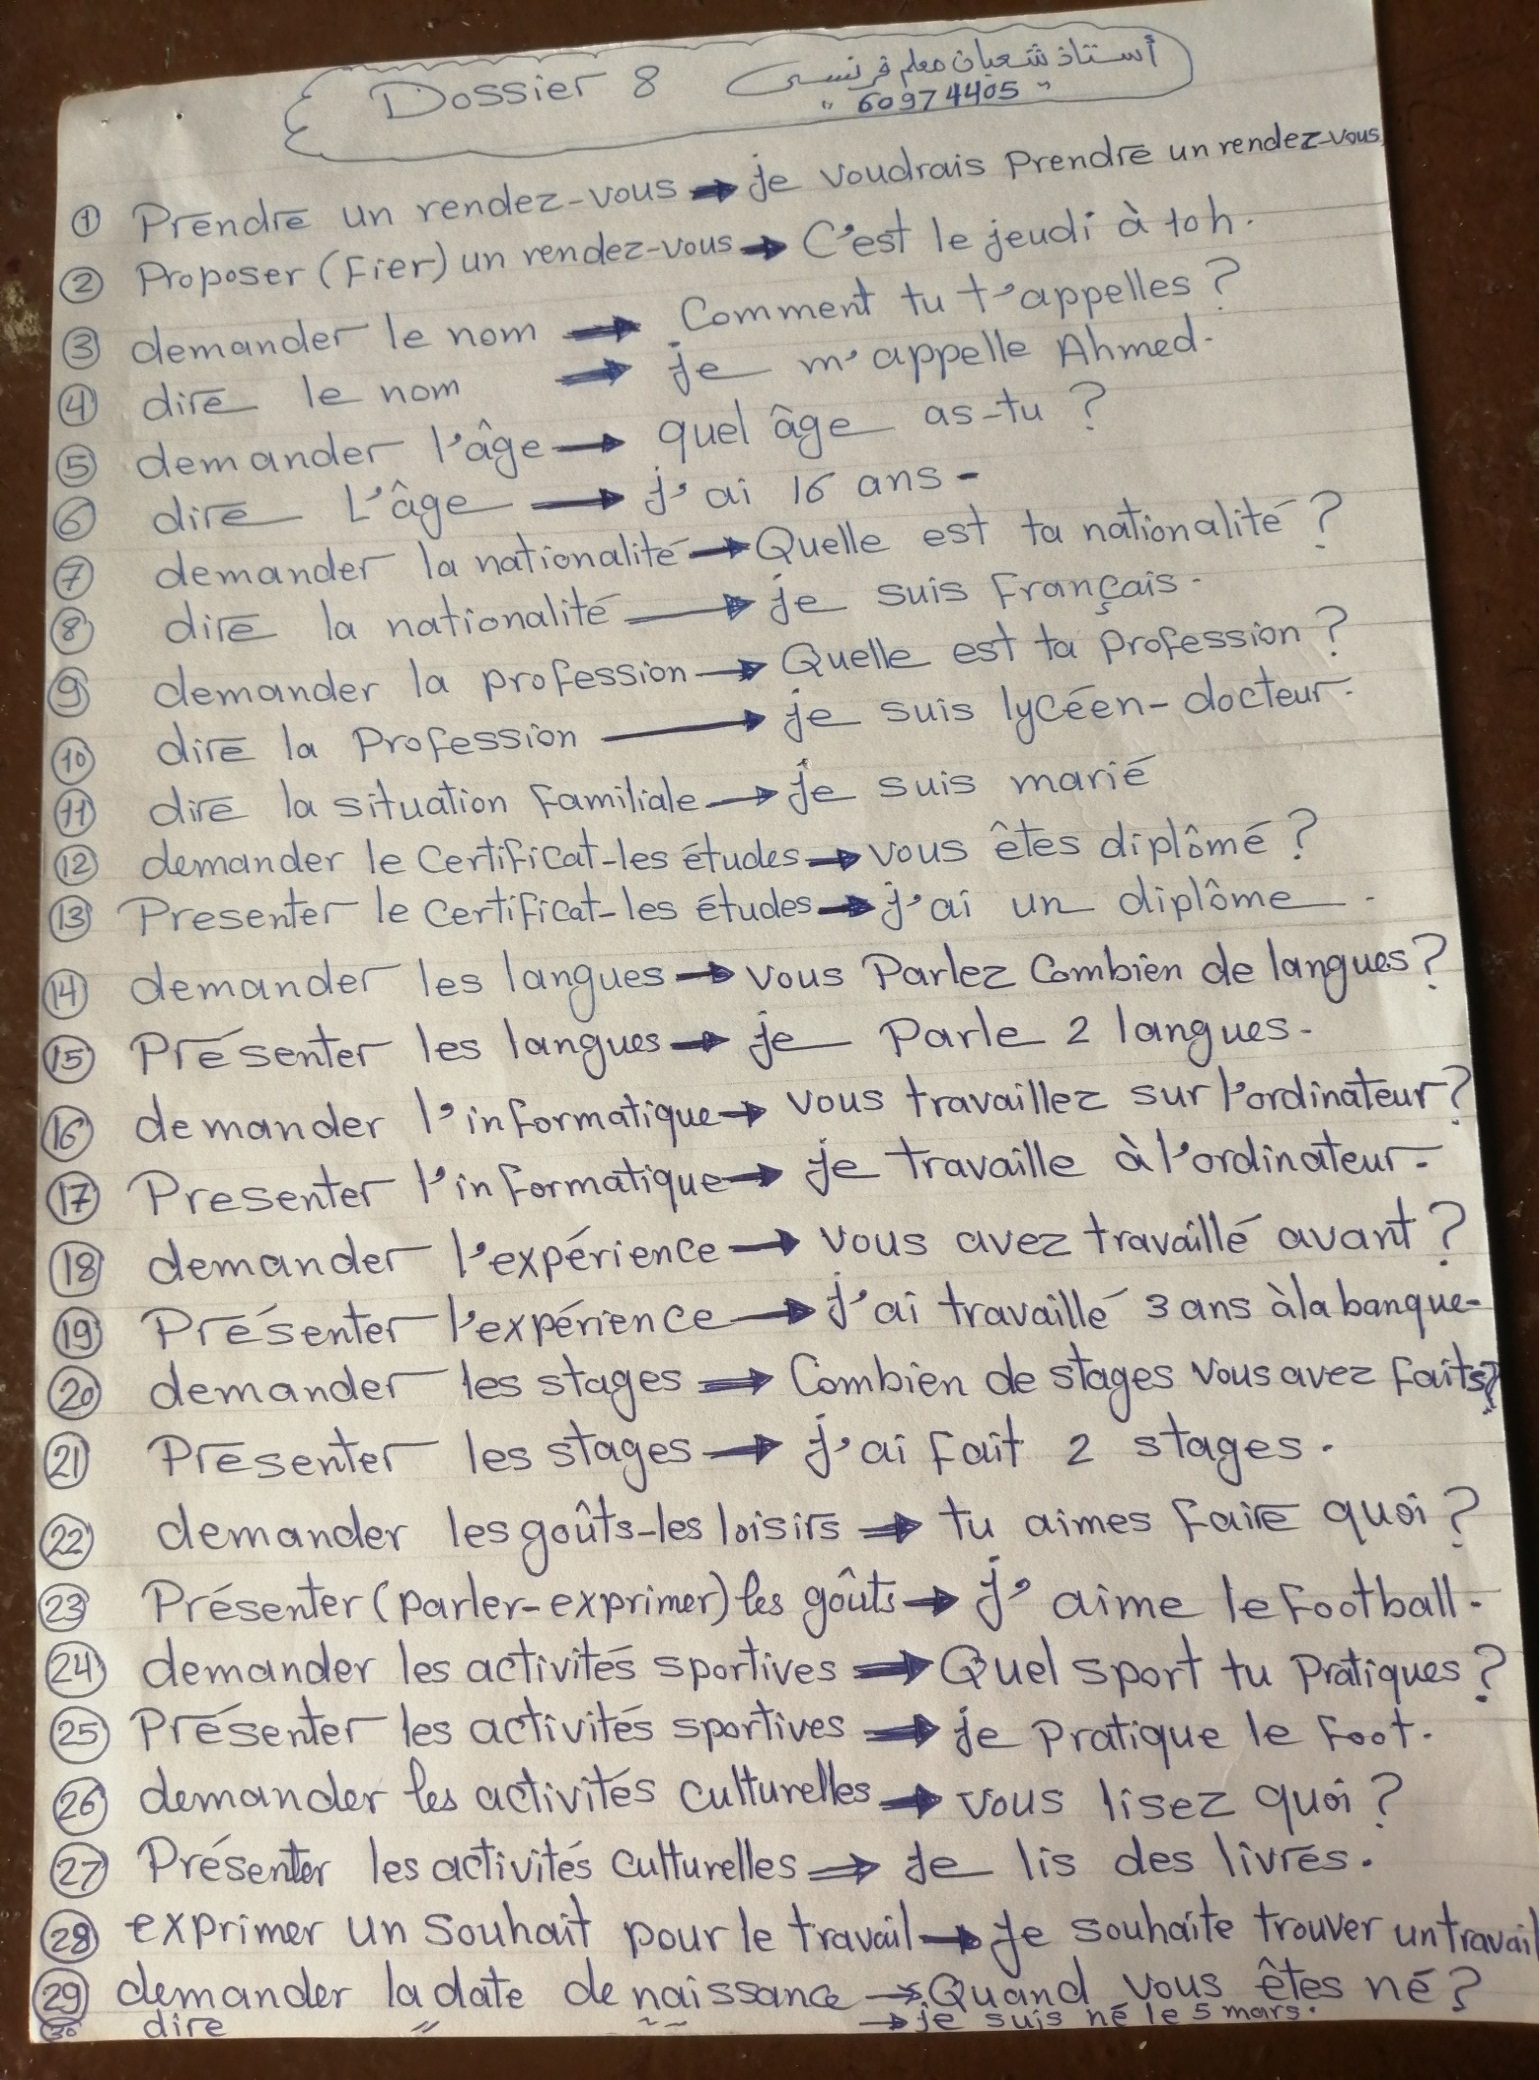 Dossier 8 أستاذ شعبان معلم فرنسى
" 60974405 "
① Prendre un rendez-vous → je voudrais Prendre un rendez-vous
② Proposer (Fier) un rendez-vous → C'est le jeudi à 10h.
③ demander le nom → Comment tu t'appelles ?
④ dire le nom → je m'appelle Ahmed.
⑤ demander l'âge → quel âge as-tu ?
⑥ dire L'âge → j'ai 16 ans -
⑦ demander la nationalité → Quelle est ta nationalité ?
⑧ dire la nationalité → je suis Français.
⑨ demander la profession → Quelle est ta Profession ?
⑩ dire la Profession → je suis lycéen - docteur.
⑪ dire la situation Familiale → je suis marié
⑫ demander le Certificat-les études → vous êtes diplômé ?
⑬ Presenter le certificat-les études → j'ai un diplôme .
⑭ demander les langues → vous Parlez Combien de langues ?
⑮ Présenter les langues → je Parle 2 langues.
⑯ demander l'informatique → vous travaillez sur l'ordinateur ?
⑰ Presenter l'informatique → je travaille à l'ordinateur.
⑱ demander l'expérience → vous avez travaillé avant ?
⑲ Présenter l'expérience → J'ai travaillé 3 ans à la banque.
⑳ demander les stages → Combien de stages vous avez Faits ?
㉑ Presenter les stages → j'ai Fait 2 stages.
㉒ demander les goûts-les loisirs → tu aimes Faire quoi ?
㉓ Présenter (parler-exprimer) les goûts → j'aime le Football.
㉔ demander les activités sportives → Quel sport tu Pratiques ?
㉕ Présenter les activités sportives → je Pratique le Foot.
㉖ demander les activités culturelles → vous lisez quoi ?
㉗ Présenter les activités culturelles → Je lis des livres.
㉘ exprimer un Souhait pour le travail → Je souhaite trouver un travail
㉙ demander la date de naissance → Quand vous êtes né ?
㉚ dire " ~ ~ → je suis né le 5 mars.